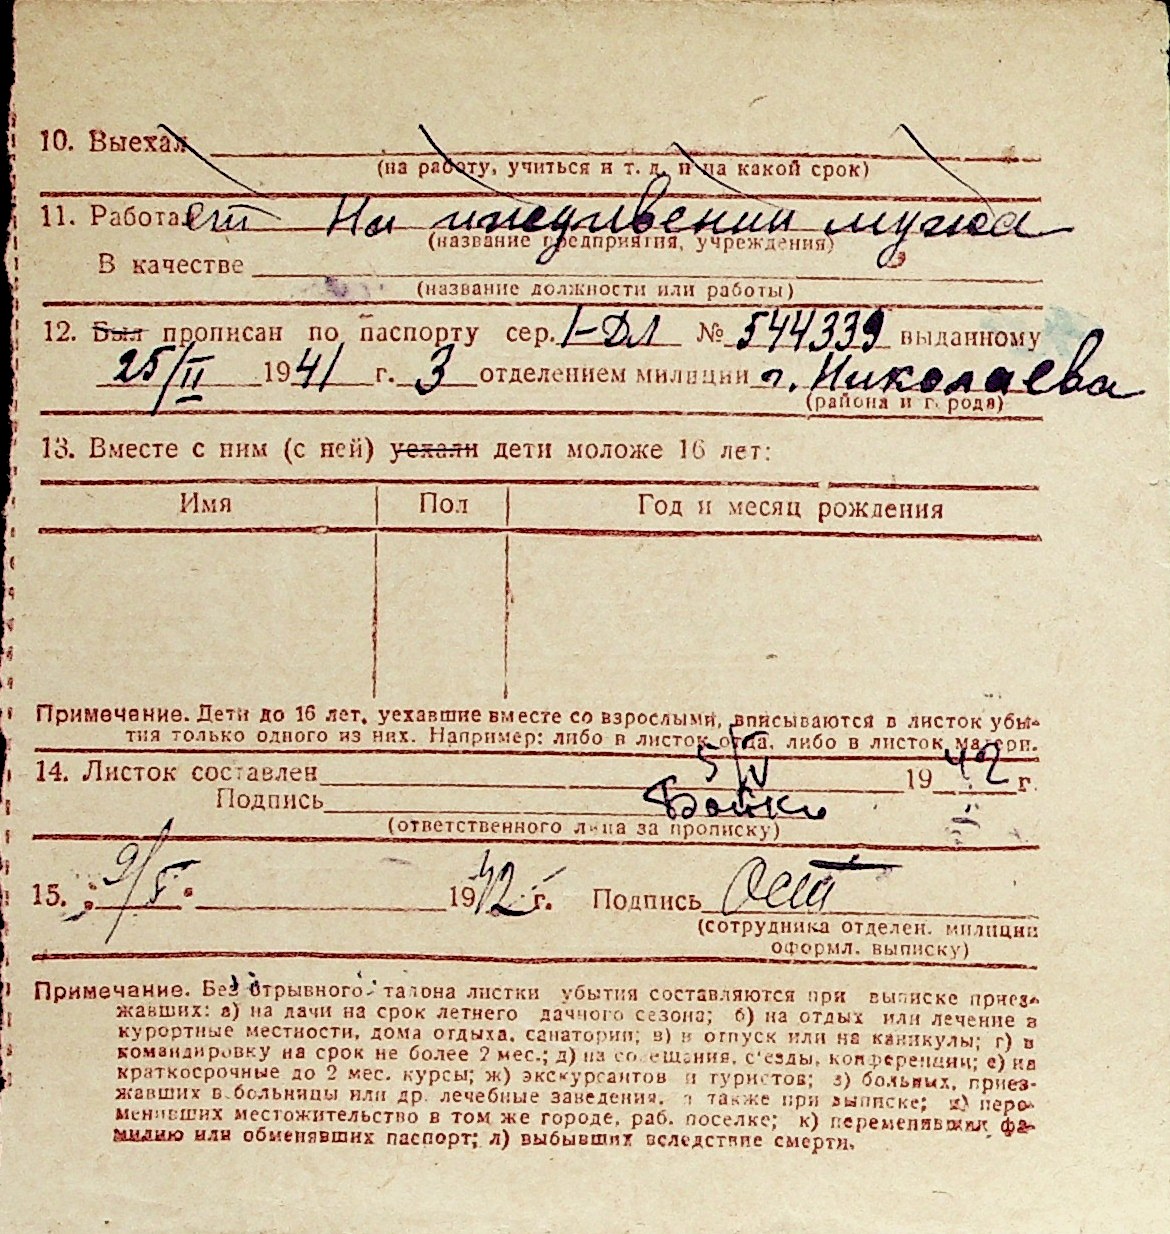 10. Выехал
(на работу, учиться и т. д. и на какой срок)
11. Работает На иждивении мужа
(название предприятия, учреждения)
В качестве
(название должности или работы)
12. Был прописан по паспорту сер. I-ДЛ № 544339 выданному
25/II 1941 г. 3 отделением милиции г. Николаева
(района и города)
13. Вместе с ним (с ней) уехали дети моложе 16 лет:
Имя Пол Год и месяц рождения
Примечание. Дети до 16 лет, уехавшие вместе со взрослыми, вписываются в листок убы-
тия только одного из них. Например: либо в листок отца, либо в листок матери.
14. Листок составлен 5/V 1942 г.
Подпись Бойко
(ответственного лица за прописку)
15. 9/V 1942 г. Подпись
(сотрудника отделен. милиции
оформл. выписку)
Примечание. Без отрывного талона листки убытия составляются при выписке приез-
жавших: а) на дачи на срок летнего дачного сезона; б) на отдых или лечение в
курортные местности, дома отдыха, санатории; в) в отпуск или на каникулы; г) в
командировку на срок не более 2 мес.; д) на совещания, с'езды, конференции; е) на
краткосрочные до 2 мес. курсы; ж) экскурсантов и туристов; з) больных, приез-
жавших в больницы или др. лечебные заведения, а также при выписке; и) пере-
менивших местожительство в том же городе, раб. поселке; к) переменивших фа-
милию или обменявших паспорт; л) выбывших вследствие смерти.